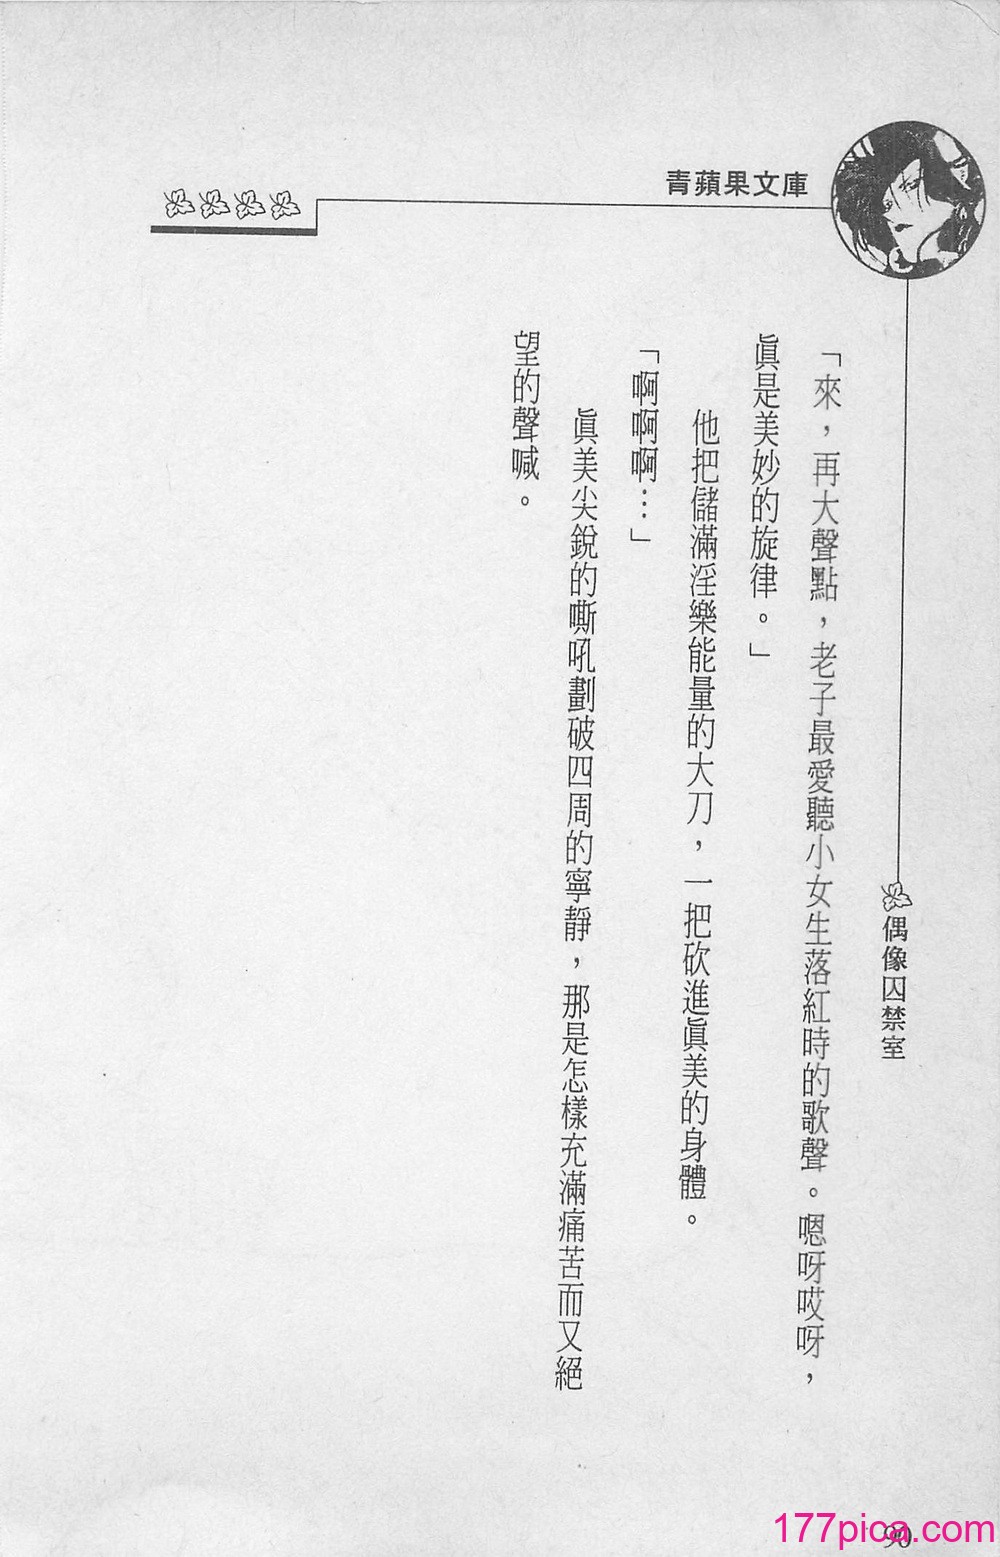 青蘋果文庫
偶像囚禁室
「來，再大聲點，老子最愛聽小女生落紅時的歌聲。嗯呀哎呀，
眞是美妙的旋律。」
他把儲滿淫樂能量的大刀，一把砍進眞美的身體。
「啊啊啊…」
眞美尖銳的嘶吼劃破四周的寧靜，那是怎樣充滿痛苦而又絕
望的聲喊。
90
177pica.com